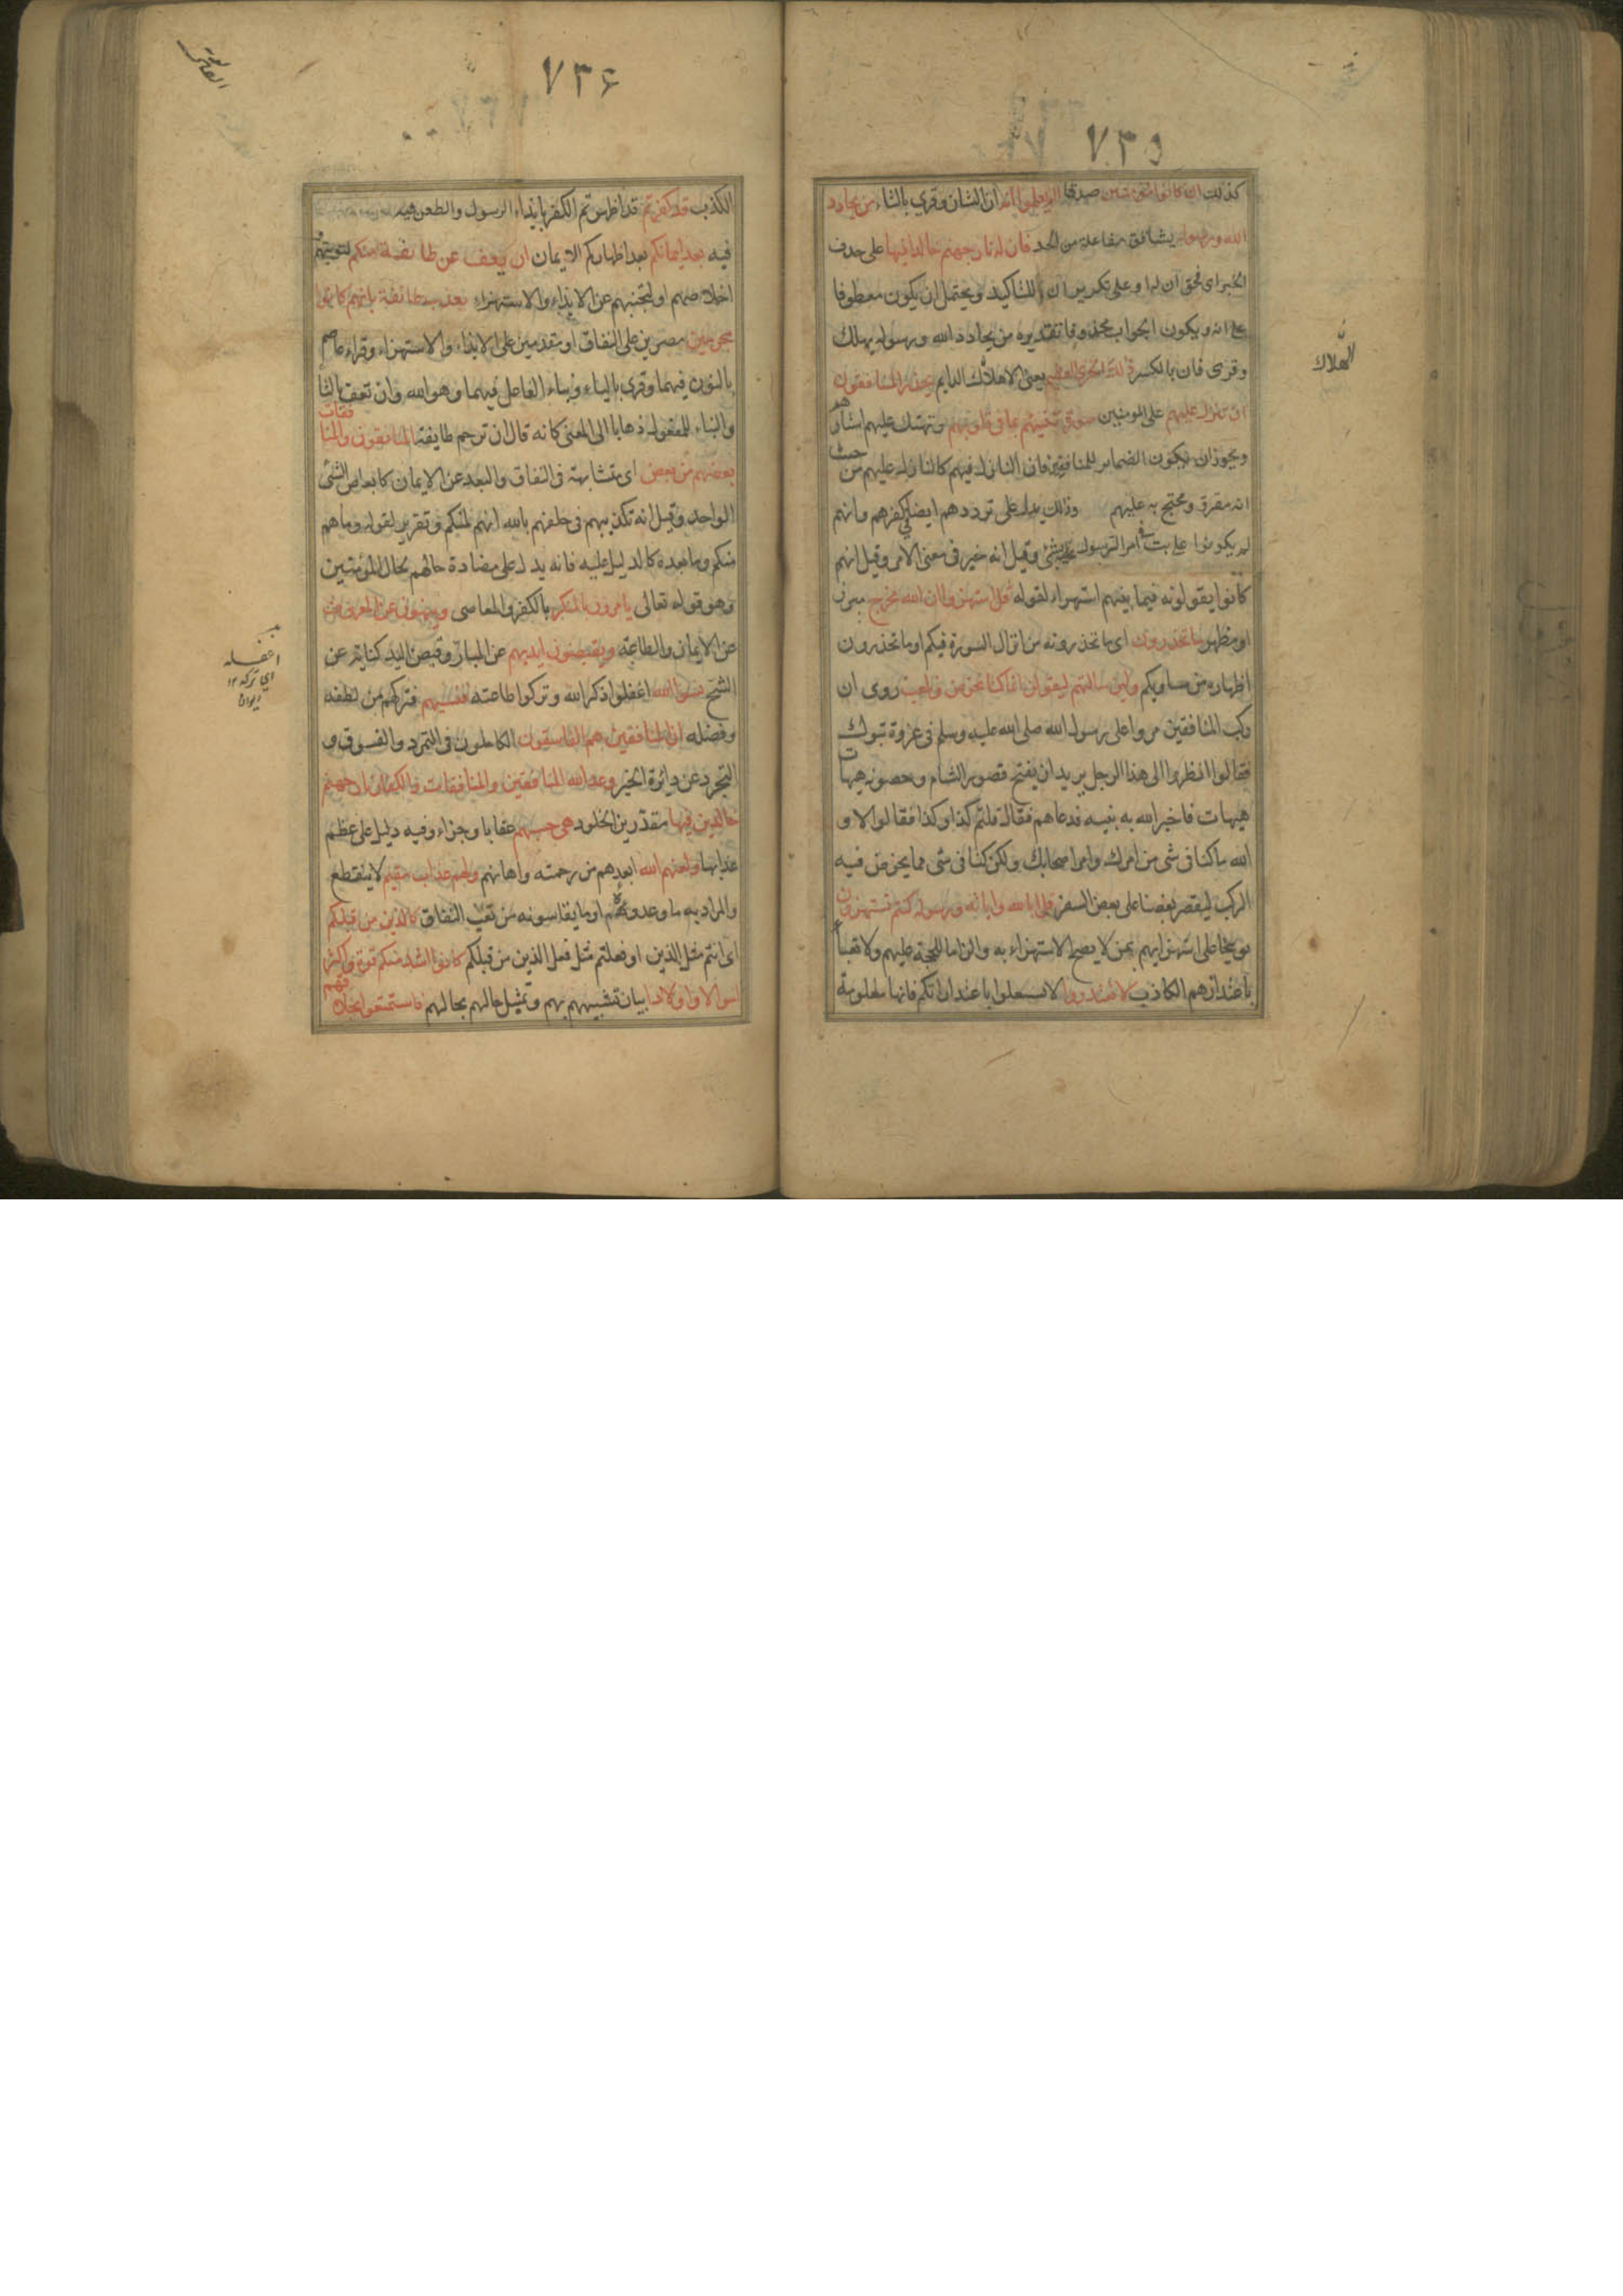 ٧٣٥
كذلك ان كانوا مؤمنين صدقا الم يعلموا انه ان الشان وقرى بالتاء من يحادد
الله ورسوله يشاقق مفاعلة من الحد فان له نار جهنم خالدا فيها على حذف
الخبر اى فحق ان له او على تكرير ان للتاكيد ويحتمل ان يكون معطوفا
على انه ويكون الجواب محذوفا تقديره من يحادد الله ورسوله يهلك
وقرى فان بالكسر ذلك الخزى العظيم يعنى الاهلاك الدايم يحذر المنافقون
ان تنزل عليهم على المومنين سورة تنبئهم بما فى قلوبهم وتهتك عليهم استارهم
ويجوز ان يكون الضماير للمنافقين فان النازل فيهم كالنازل عليهم من حيث
انه مقرو ومحتج به عليهم وذلك يدل على ترددهم ايضا فى كفرهم وانهم
لم يكونوا على بت فى امر الرسول بشئ وقيل انه خبر فى معنى الامر وقيل انهم
كانوا يقولونه فيما بينهم استهزاء لقوله قل استهزوا ان الله مخرج مبرز
او مظهر ما تحذرون اى ما تحذرونه من انزال السورة فيكم او ما تحذرون
اظهاره من مساويكم ولين سالتهم ليقولن انما كنا نخوض ونلعب روى ان
ركب المنافقين مروا على رسول الله صلى الله عليه وسلم فى غزوة تبوك
فقالوا انظروا الى هذا الرجل يريد ان يفتح قصور الشام وحصونه هيهات
هيهات فاخبر الله به نبيه فدعاهم فقال قلتم كذا وكذا فقالوا لا و
الله ما كنا فى شى من امرك وامر اصحابك ولكن كنا فى شى مما يخوض فيه
الركب ليقصر بعضنا على بعض السفر قل ابالله واياته ورسوله كنتم تستهزون
توبيخا على استهزايهم بمن لا يصح الاستهزاء به والزاما للحجة عليهم ولا تعبأ
باعتذارهم الكاذب لا تعتذروا لا تشتغلوا باعتذاراتكم فانها معلومة
الهلاك
٧٣۶
الكذب قد كفرتم قد اظهرتم الكفر بايذاء الرسول والطعن فيه
فيه بعد ايمانكم بعد اظهاركم الايمان ان يعف عن طائفة منكم لتوبتهم و
اخلاصهم او لتجنبهم عن الايذاء والاستهزاء يعذب طائفة بانهم كانوا
مجرمين مصرين على النفاق او مقدمين على الايذاء والاستهزاء وقراء عاصم
بالنون فيهما وقرى بالياء وبناء الفاعل فيهما وهو الله وان تعف بالتا
والبناء للمفعول ذهابا الى المعنى كانه قال ان ترحم طايفة المنافقون والمنافقات
بعضهم من بعض اى متشابهة فى النفاق والبعد عن الايمان كابعاض الشئ
الواحد وقيل انه تكذيبهم فى حلفهم بالله انهم لمنكم وتقرير لقوله وما هم
منكم وما بعده كالدليل عليه فانه يدل على مضادة حالهم بحال المؤمنين
وهو قوله تعالى يامرون بالمنكر بالكفر والمعاصى وينهون عن المعروف
عن الايمان والطاعة ويقبضون ايديهم عن المبار وقبض اليد كناية عن
الشح نسوا الله اغفلوا ذكر الله وتركوا طاعته فنسيهم فتركهم من لطفه
وفضله ان المنافقين هم الفاسقون الكاملون فى التمرد والفسوق و
التجرد عن دائرة الخير وعد الله المنافقين والمنافقات والكفار نار جهنم
خالدين فيها مقدرين الخلود هى حسبهم عقابا وجزاء وفيه دليل على عظم
عذابها ولعنهم الله ابعدهم من رحمته واهانهم ولهم عذاب مقيم لا ينقطع
والمراد به ما وعدوه او ما يقاسونه من تعب النفاق كالذين من قبلكم
اى انتم مثل الذين او فعلتم مثل فعل الذين من قبلكم كانوا اشد منكم قوة واكثر
اموالا واولادا بيان تشبيههم بهم وتمثيل حالهم بحالهم فاستمتعوا بخلاقهم
اغفله
اي تركه ١٢